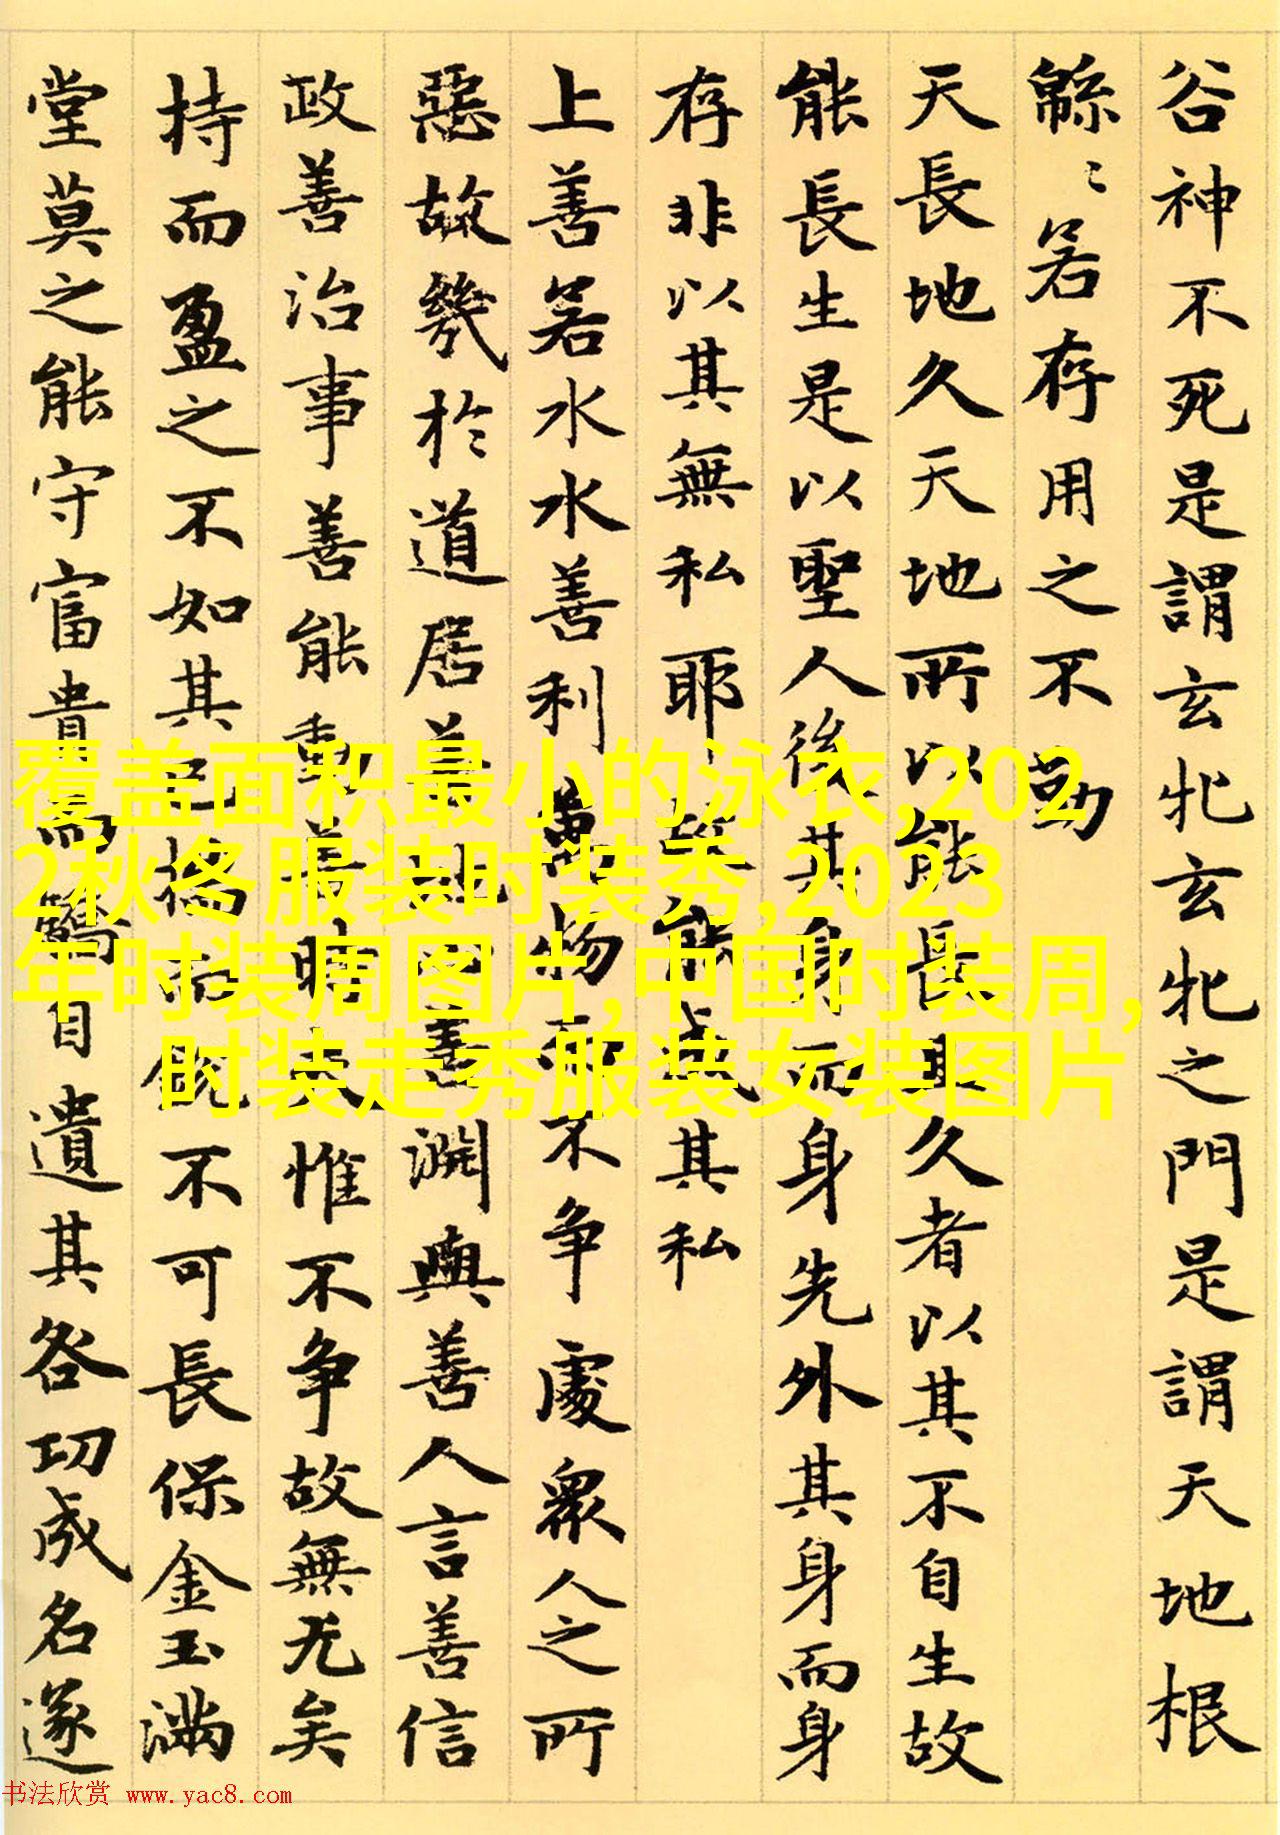 谷神不死是謂玄牝玄牝之門是謂天地根
緜〻若存用之不勤
天長地久天地所以能長且久者以其不自生故
能長生是以聖人後其身而身先外其身而身
存非以其無私耶故能成其私
上善若水水善利萬物而不争處衆人之所
惡故幾於道居善地心善淵與善人言善信
政善治事善能動善時夫惟不争故無尤矣
持而盈之不如其已揣而銳不可長保金玉滿
堂莫之能守富貴而驕自遺其咎功成名遂
覆盖面积最小的泳衣,202
2秋冬服装时装秀,2023
年时装周图片,中国时装周,
时装走秀服装女装图片
书法欣赏 www.yac8.com